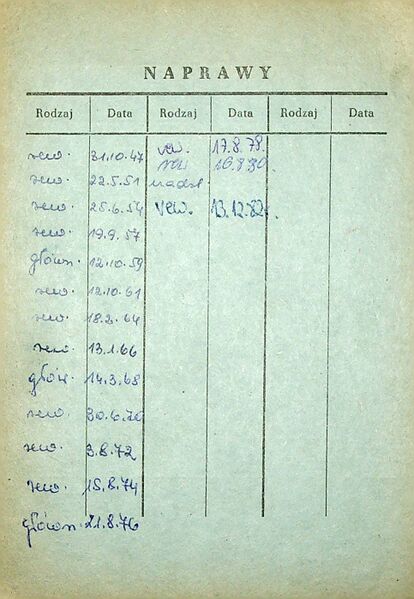 NAPRAWY
Rodzaj Data Rodzaj Data Rodzaj Data
rew. 31.10.47 rew. 17.8.78.
rew. 22.5.51 rew. 16.8.80.
nadzl
rew. 25.6.54 rew. 13.12.82.
rew. 19.9.57
główn. 12.10.59
rew. 12.10.61
rew. 18.2.64
rew. 13.1.66
głów. 14.3.68
rew. 30.6.70
rew. 3.8.72
rew. 15.8.74
główn. 21.8.76